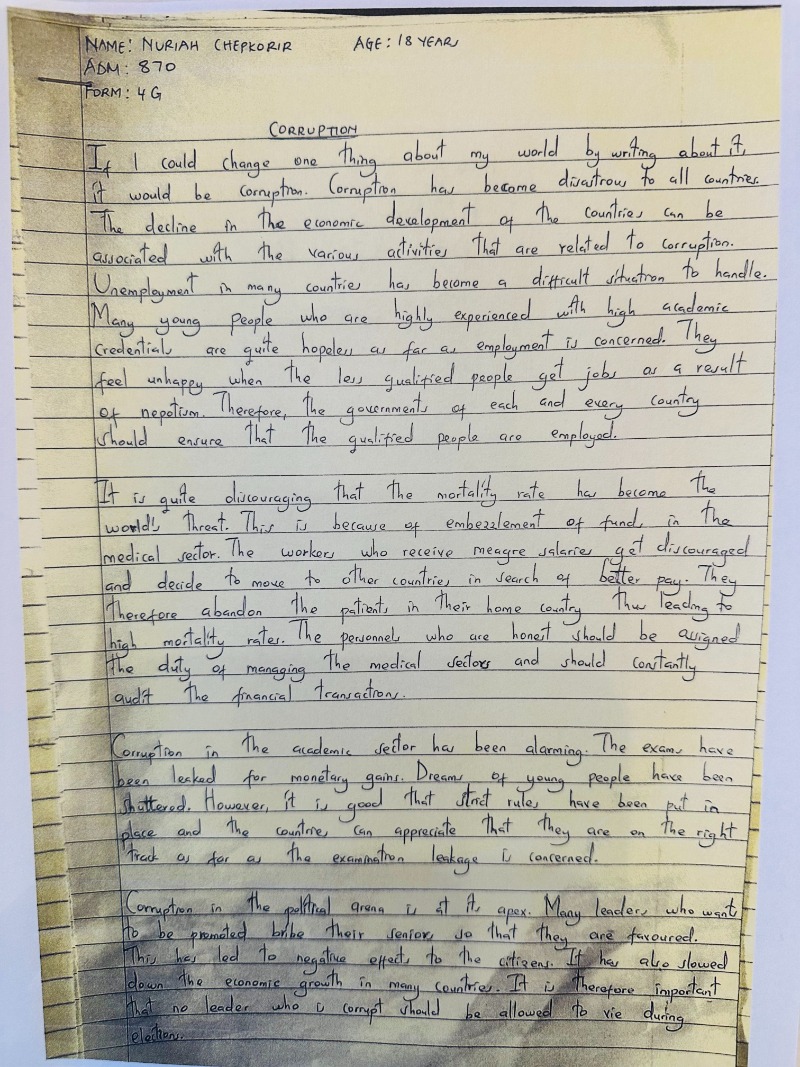 NAME: NURIAH CHEPKORIR AGE: 18 YEARS
ADM: 870
FORM: 4G
CORRUPTION
If I could change one thing about my world by writing about it,
it would be corruption. Corruption has become disastrous to all countries.
The decline in the economic development of the countries can be
associated with the various activities that are related to corruption.
Unemployment in many countries has become a difficult situation to handle.
Many young people who are highly experienced with high academic
credentials are quite hopeless as far as employment is concerned. They
feel unhappy when the less qualified people get jobs as a result
of nepotism. Therefore, the governments of each and every country
should ensure that the qualified people are employed.
It is quite discouraging that the mortality rate has become the
world's threat. This is because of embezzlement of funds in the
medical sector. The workers who receive meagre salaries get discouraged
and decide to move to other countries in search of better pay. They
therefore abandon the patients in their home country thus leading to
high mortality rates. The personnels who are honest should be assigned
the duty of managing the medical sectors and should constantly
audit the financial transactions.
Corruption in the academic sector has been alarming. The exams have
been leaked for monetary gains. Dreams of young people have been
shuttered. However, it is good that strict rules have been put in
place and the countries can appreciate that they are on the right
track as far as the examination leakage is concerned.
Corruption in the political arena is at its apex. Many leaders who want
to be promoted bribe their seniors so that they are favoured.
This has led to negative effects to the citizens. It has also slowed
down the economic growth in many countries. It is therefore important
that no leader who is corrupt should be allowed to vie during
elections.